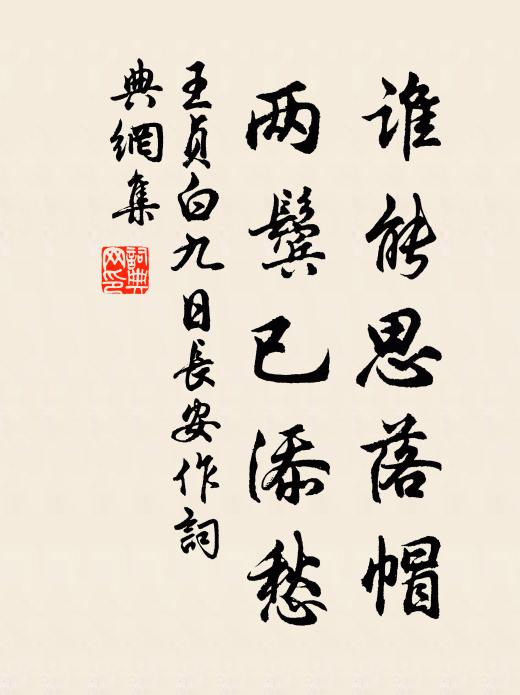 谁能思落帽
两鬓已添愁
王貞白九日長安作詞
典網集
詞典
网印